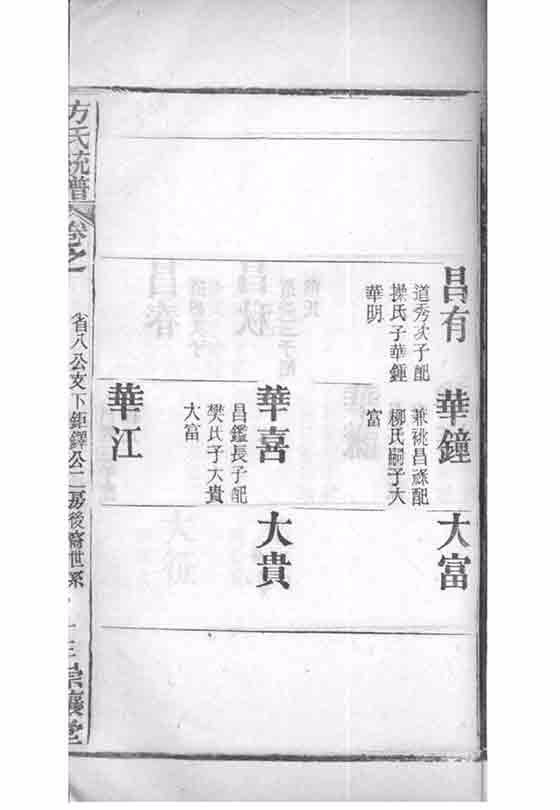 昌有
道秀次子配
操氏子華鍾
華明
華鐘
兼祧昌祿配
柳氏嗣子大
富
大富
華喜
昌鑑長子配
樊氏子大貴
大富
大貴
華江
方氏統譜
卷之
省八公支下鉅鐸公二房後裔世系